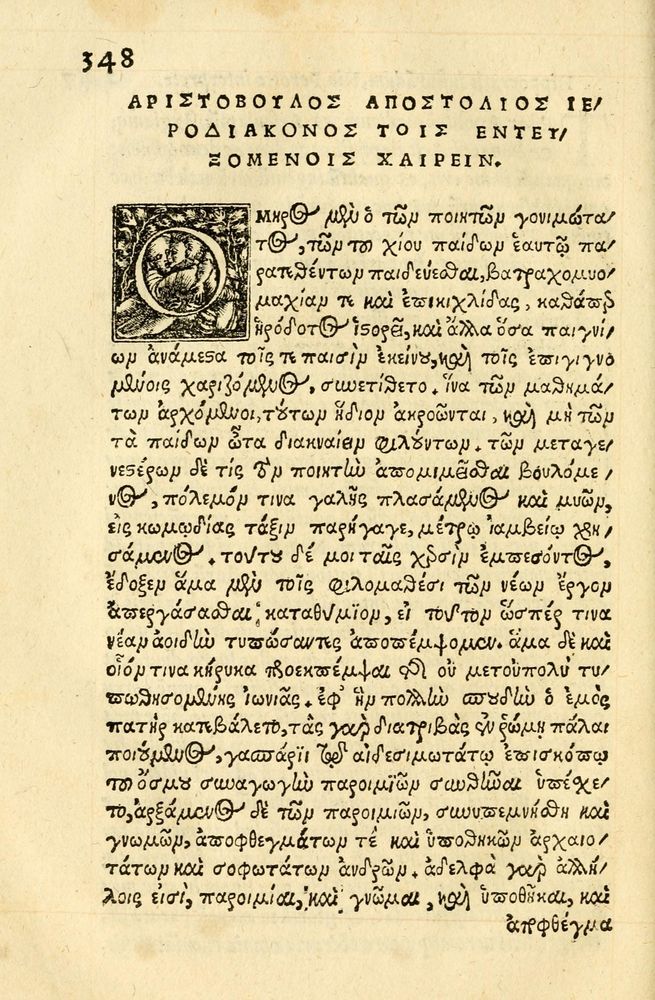 348
ΑΡΙΣΤΟΒΟΥΛΟΣ ΑΠΟΣΤΟΛΙΟΣ ΙΕ/
ΡΟΔΙΑΚΟΝΟΣ ΤΟΙΣ ΕΝΤΕΥ/
ΞΟΜΕΝΟΙΣ ΧΑΙΡΕΙΝ.
ΟΜηρος μὲν ὁ τῶν ποιητῶν γονιμώτα/
τος, τῶν τοῦ χίου παίδων ἑαυτῷ πα/
ρατεθέντων παιδεύεσθαι, βατραχομυο/
μαχίαν τε καὶ ἐπικιχλίδας, καθάπερ
ἡρόδοτος ἱστορεῖ, καὶ ἄλλα ὅσα παιγνί/
ων ἀνάμεστα τοῖς τε παισὶν ἐκείνου, καὶ τοῖς ἐπιγιγνο
μένοις χαριζόμενος, συνετίθετο. ἵνα τῶν μαθημά/
των ἀρχόμενοι, τούτων ἥδιον ἀκροῶνται, καὶ μὴ τῶν
τὰ παίδων ὦτα διακναίειν φιλούντων. τῶν μεταγε/
νεστέρων δέ τίς τὸν ποιητὴν ἀπομιμεῖσθαι βουλόμε/
νος, πόλεμόν τινα γαλῆς πλασάμενος καὶ μυῶν,
εἰς κωμῳδίας τάξιν παρήγαγε, μέτρῳ ἰαμβείῳ χρη/
σάμενος. τούτου δέ μοι ταῖς χερσὶν ἐμπεσόντος,
ἔδοξεν ἅμα μὲν τοῖς φιλομαθέσι τῶν νέων ἔργον
ἀπεργάσασθαι καταθύμιον, εἰ τοῦτον ὥσπέρ τινα
νέαν ἀοιδὴν τυπώσαντες ἀποπέμψομεν. ἅμα δὲ καὶ
οἷόν τινα κήρυκα προεκπέμψαι τῆς οὐ μετοὐπολὺ τυ/
πωθησομένης ἰωνιᾶς. ἐφ' ἣν πολλὴν σπουδὴν ὁ ἐμὸς
πατὴρ κατεβάλετο, τὰς γὰρ διατριβὰς ἐν ῥώμῃ πάλαι
ποιούμενος, γασπάρϊι τῷ αἰδεσιμωτάτῳ ἐπισκόπῳ
τοῦ ὄσμου συναγωγὴν παροιμϊῶν συνθεῖναι ὑπέσχε/
το, ἀρξάμενος δὲ τῶν παροιμιῶν, συνυπεμνήσθη καὶ
γνωμῶν, ἀποφθεγμάτων τέ καὶ ὑποθηκῶν ἀρχαιο/
τάτων καὶ σοφωτάτων ἀνδρῶν. ἀδελφὰ γὰρ ἀλλή/
λοις εἰσὶ, παροιμίαι, καὶ γνῶμαι, καὶ ὑποθῆκαι, καὶ
ἀποφθέγμα